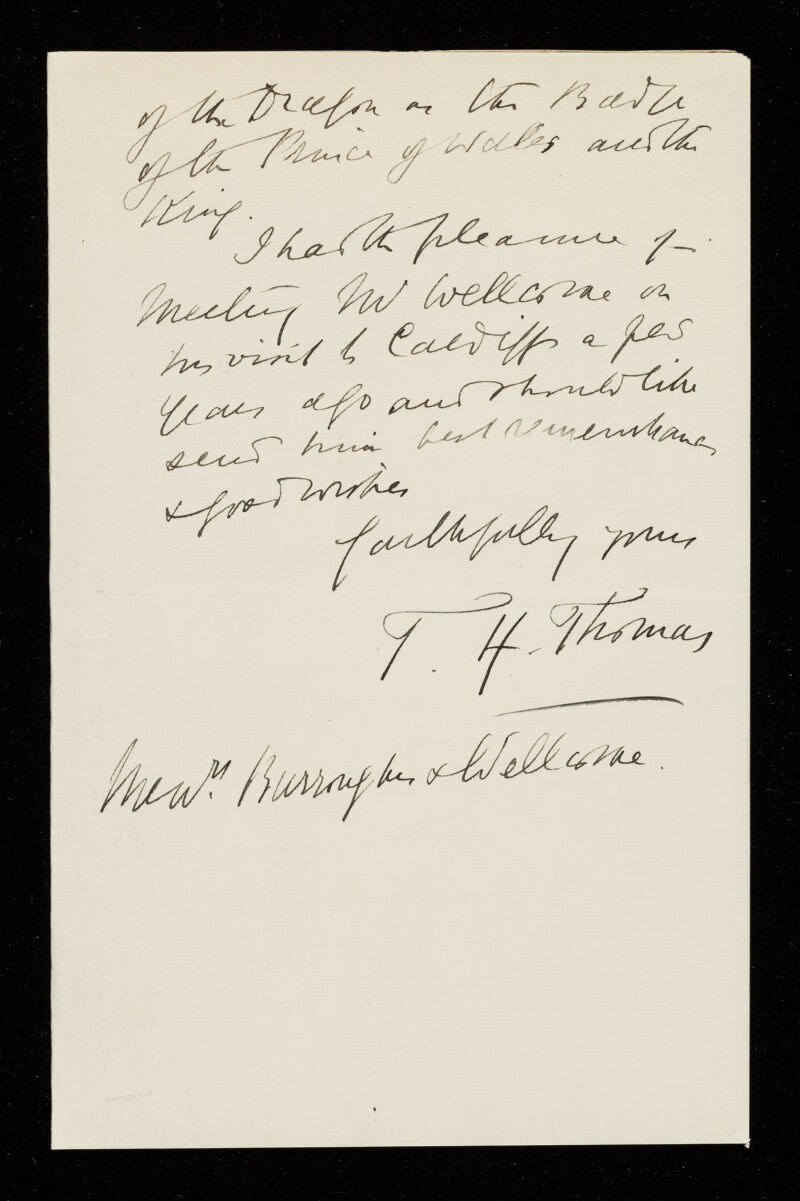 of the Dragon as the Badge
of the Prince of Wales and the
King.
I had the pleasure of
Meeting Mr Wellcome on
his visit to Cardiff a few
years ago and should like
send him best remembrances
& good wishes
Faithfully yours
T. H. Thomas
Messrs. Burroughs & Wellcome.